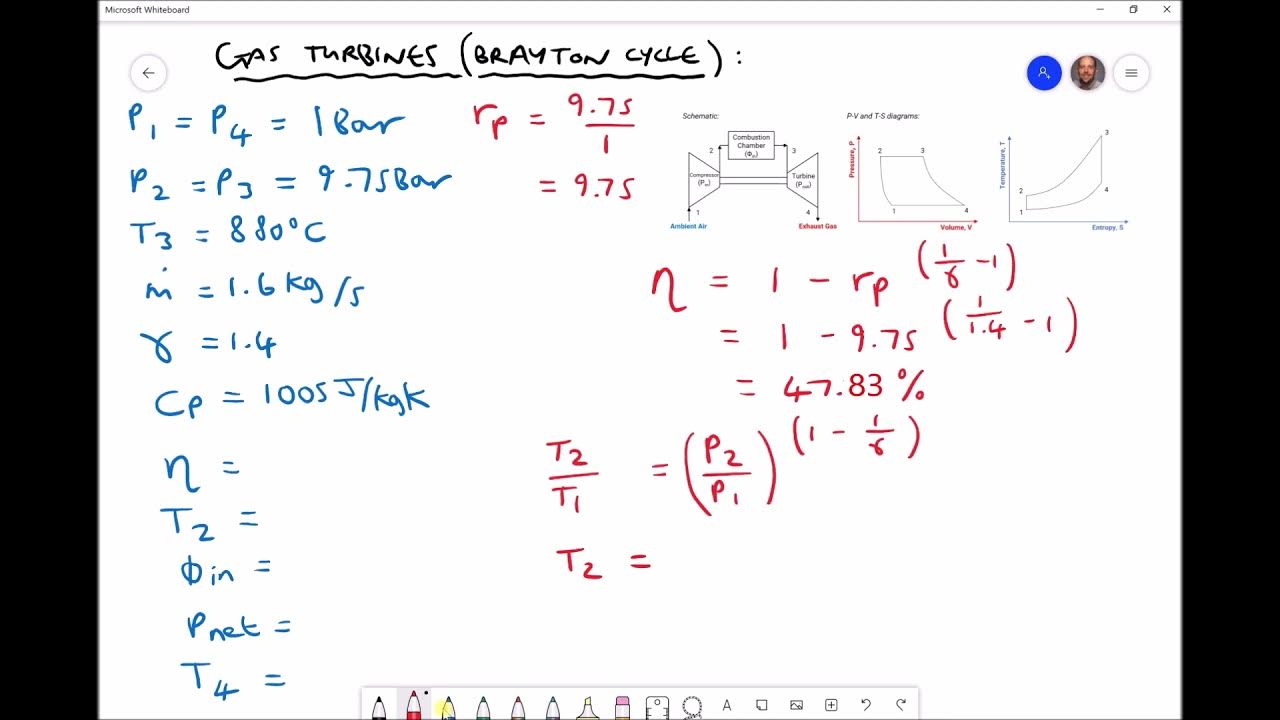 Microsoft Whiteboard
GAS TURBINES (BRAYTON CYCLE):
P1 = P4 = 1 Bar
P2 = P3 = 9.75 Bar
T3 = 880°C
ṁ = 1.6 kg/s
γ = 1.4
Cp = 1005 J/kgK
η =
T2 =
Φin =
Pnet =
T4 =
rp = 9.75/1
= 9.75
Schematic:
Combustion
Chamber
(Φin)
2
3
Compressor
(Pin)
Turbine
(Pnet)
1
4
Ambient Air
Exhaust Gas
P-V and T-S diagrams:
Pressure, P
2
3
1
4
Volume, V
Temperature, T
3
2
4
1
Entropy, S
η = 1 - rp (1/γ - 1)
= 1 - 9.75 (1/1.4 - 1)
= 47.83 %
T2/T1 = (P2/P1) (1 - 1/γ)
T2 =
A